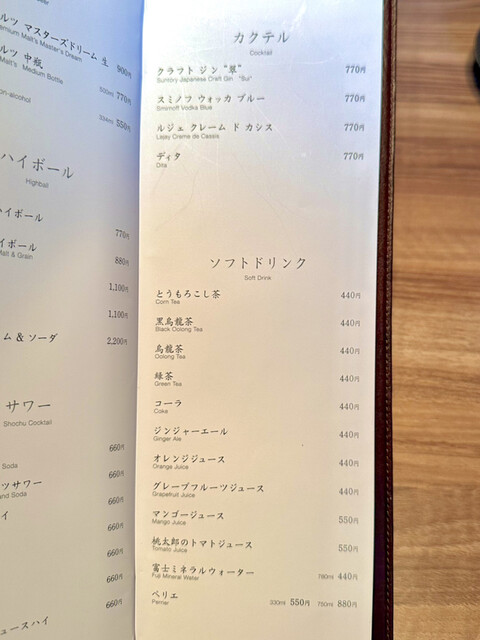 ルツ マスターズドリーム 生 900円
remium Malt's Master's Dream
ルツ 中瓶
Malt's Medium Bottle 500ml 770円
on-alcohol 334ml 550円
ハイボール
Highball
イボール 770円
イボール 880円
Malt & Grain
1,100円
1,100円
ム & ソーダ 2,200円
サワー
Shochu Cocktail
660円
Soda
ツサワー 660円
and Soda
イ 660円
660円
660円
660円
ュースハイ 660円
カクテル
Cocktail
クラフト ジン "翠" 770円
Suntory Japanese Craft Gin "Sui"
スミノフ ウォッカ ブルー 770円
Smirnoff Vodka Blue
ルジェ クレーム ド カシス 770円
Lejay Creme de Cassis
ディタ 770円
Dita
ソフトドリンク
Soft Drink
とうもろこし茶 440円
Corn Tea
黒烏龍茶 440円
Black Oolong Tea
烏龍茶 440円
Oolong Tea
緑茶 440円
Green Tea
コーラ 440円
Coke
ジンジャーエール 440円
Ginger Ale
オレンジジュース 440円
Orange Juice
グレープフルーツジュース 440円
Grapefruit Juice
マンゴージュース 550円
Mango Juice
桃太郎のトマトジュース 550円
Tomato Juice
富士ミネラルウォーター 780ml 440円
Fuji Mineral Water
ペリエ 330ml 550円 750ml 880円
Perrier